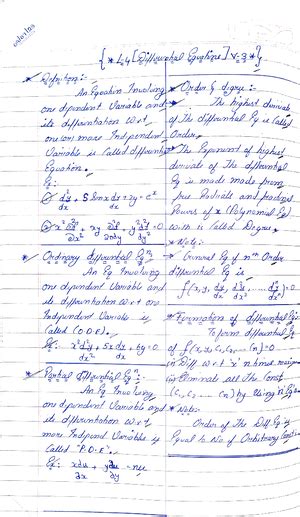 { * L-4 [Differential Equations] V-3 * }
* Definition:-
An Equation Involving
one dependent Variable and
its differentiation w.r.t
one (or) more Independent
Variable is Called differential
Equation.
Eg:
* Ordinary differential Eqn
An Eq Involving
one dependent Variable and
its differentiation w.r.t one
Independent Variable is
Called (O.D.E).
Eg: x² d²y/dx² + 5x dy/dx + 6y = 0
* Partial Differential Eqn:-
An Eq Involving
one dependent Variable and
its differentiation w.r.t
more Independ Variable is
Called "P.D.E".
Ex: x ∂u/∂x + y ∂u/∂y = nu
* Order & degree:-
* The highest derivate
of The differential Eq is Called
Order.
* The Exponent of highest
derivate of The differential
Eq is made from
free Radicals and
Powers of (Polynomial Eq)
is Called Degree.
* Note:-
General Eq of nth Order
differential Eq is
* Formation of differential Eq:-
To form differential Eq
of = 0
Diff w.r.t 'x' n times
Eliminate all The Const
(C₁, C₂ ... Cn) by Using n Eqns
* Note:-
Order of The Diff Eq is
Equal to No of Orbitrary Const